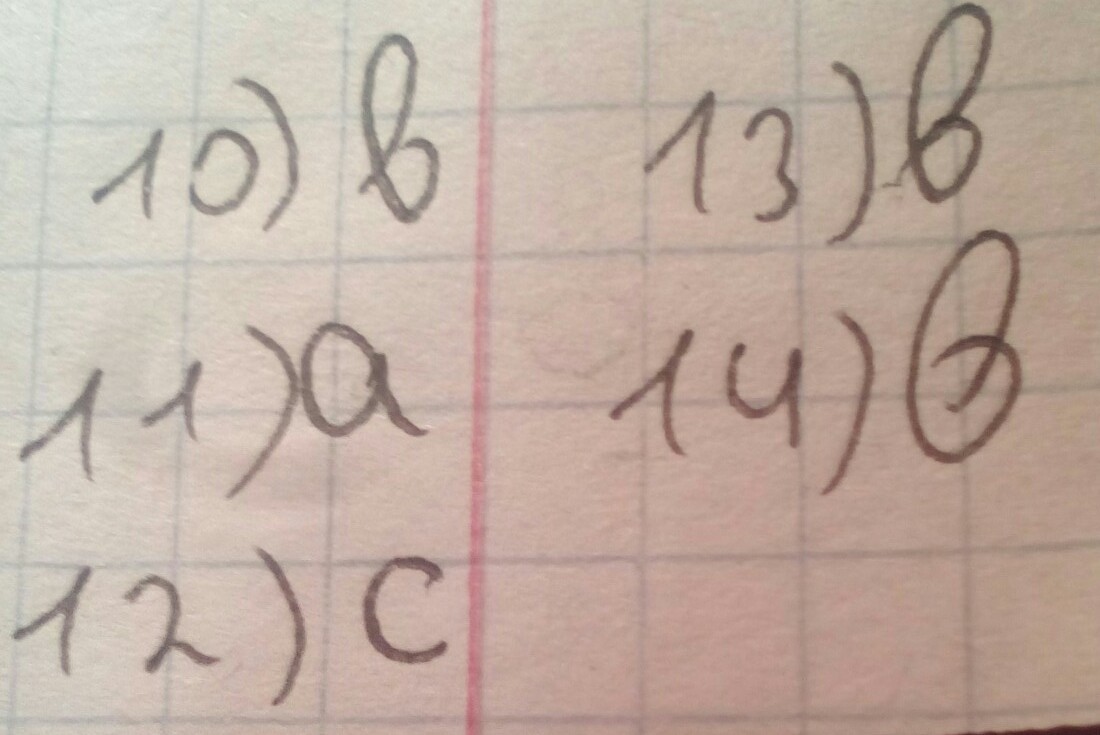 10) в
11) а
12) с
13) в
14) в